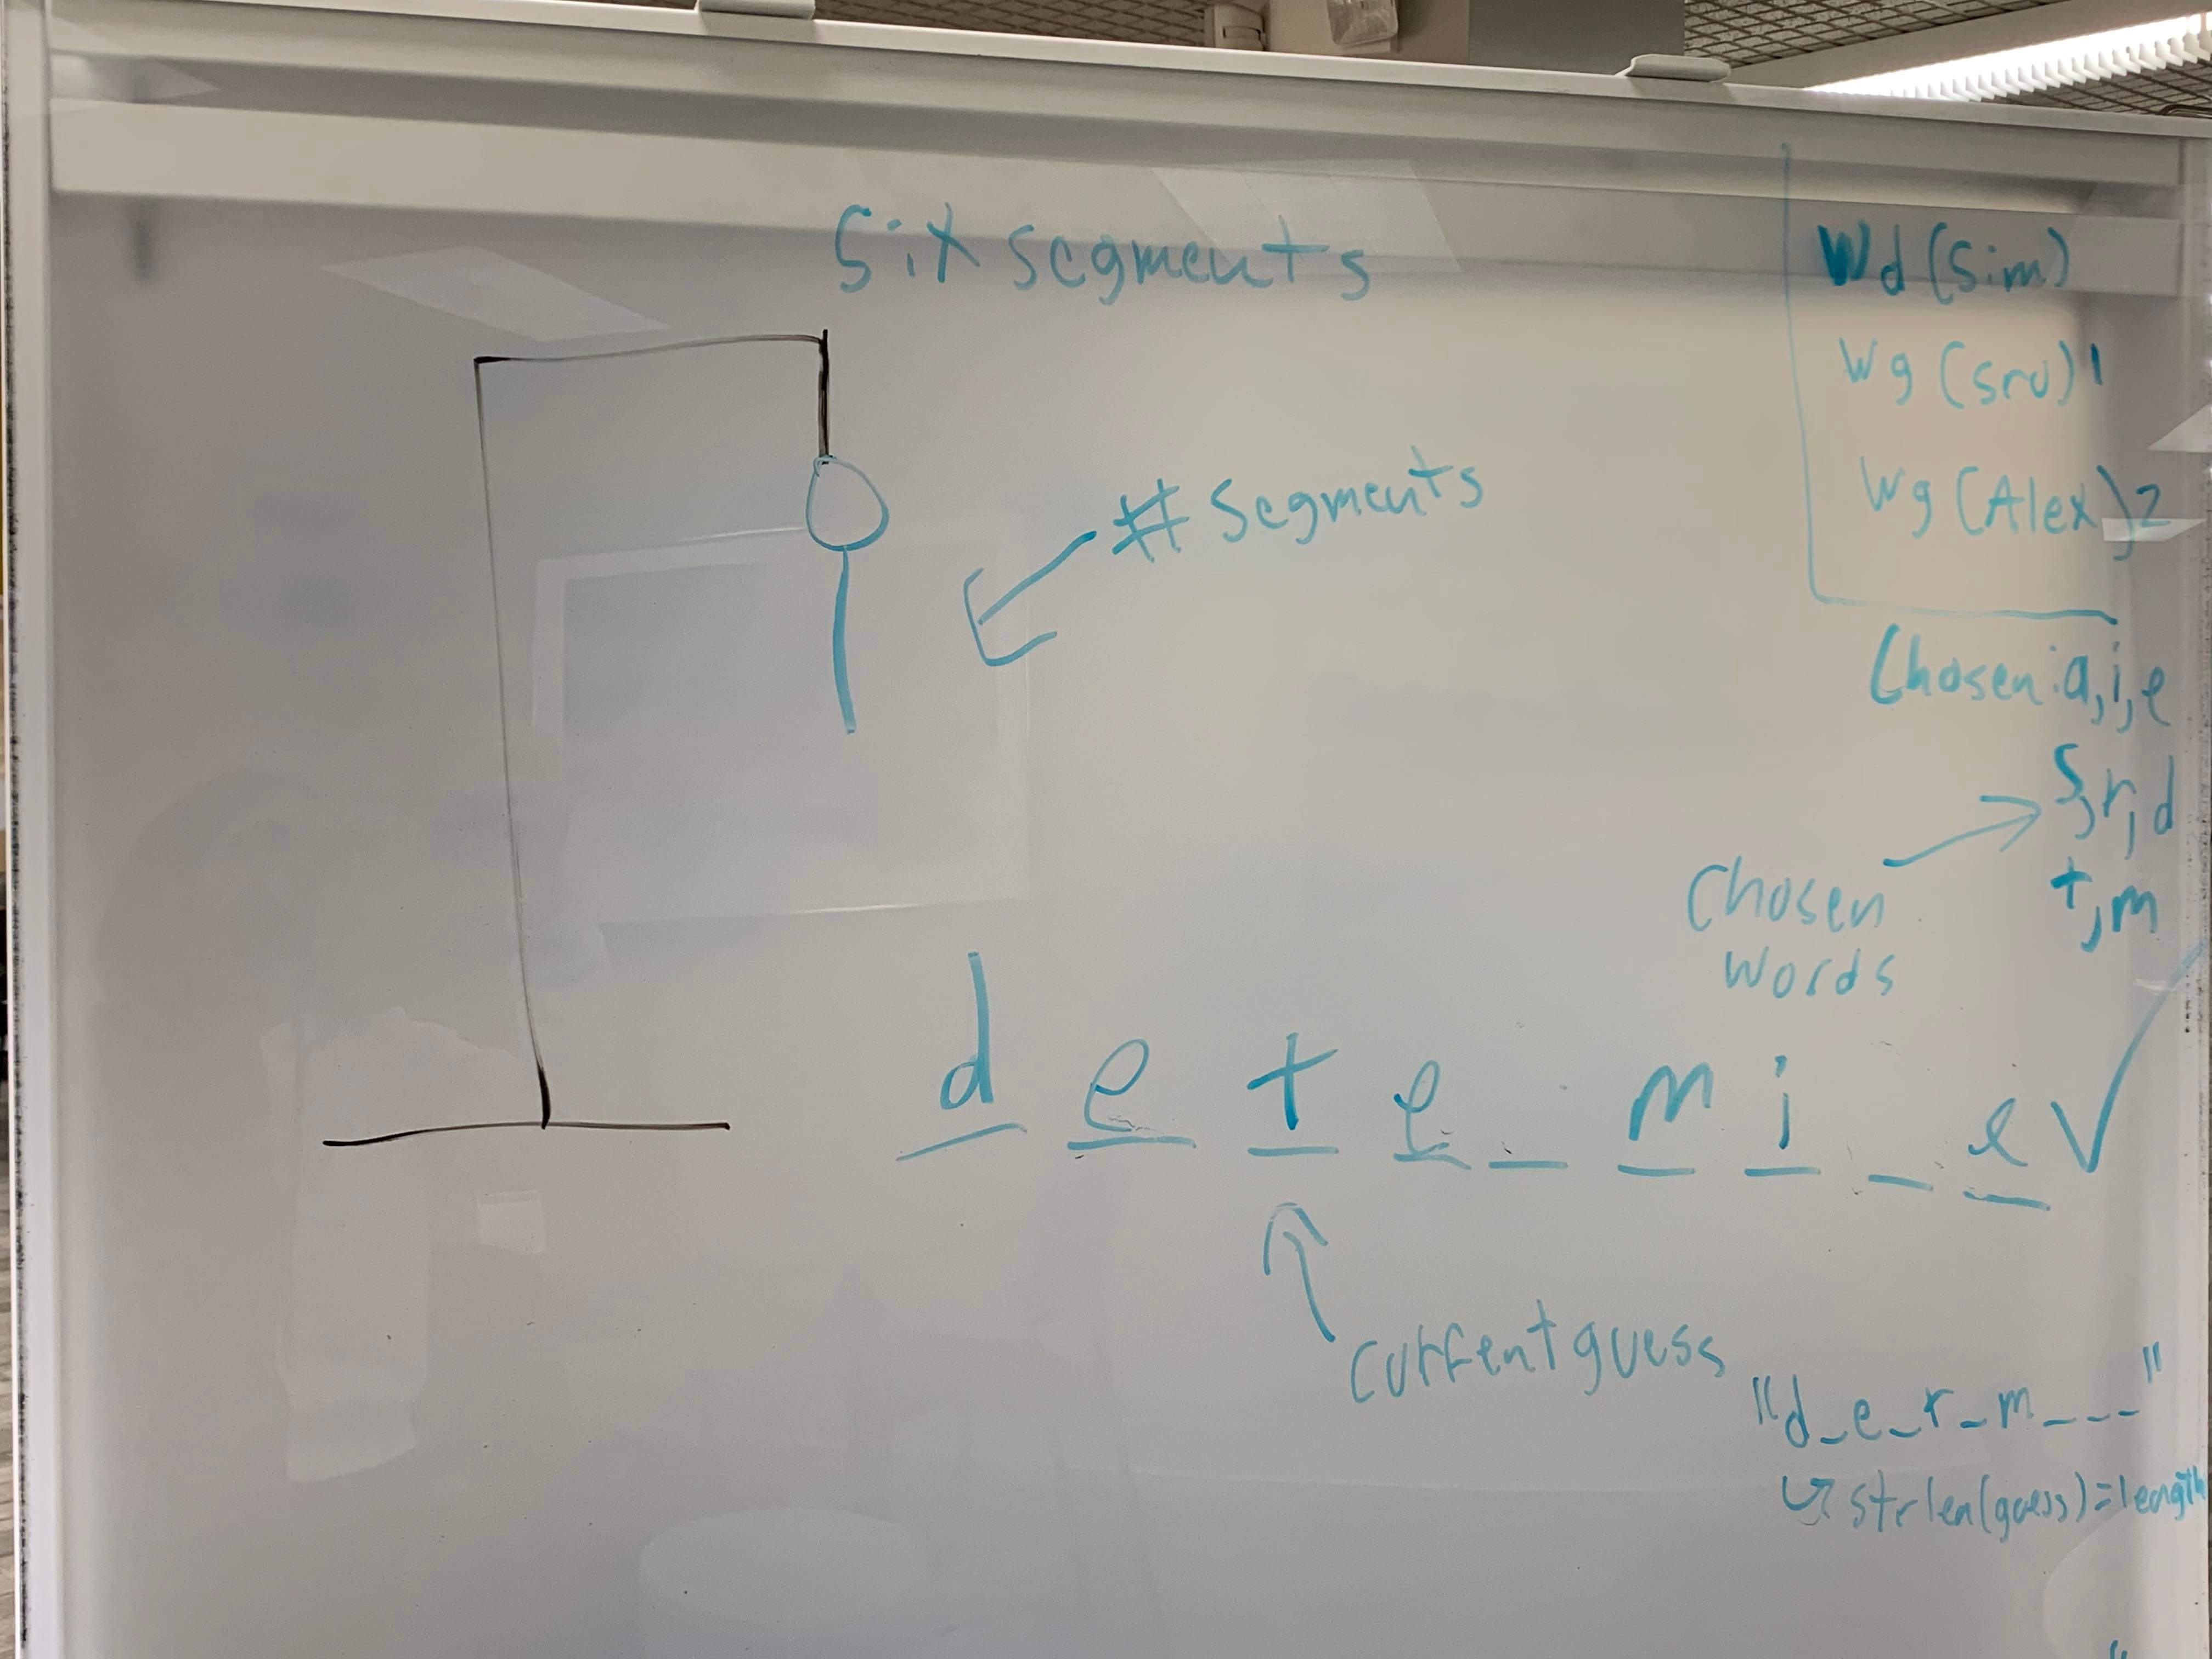 Six segments
Wd (Sim)
Wg (Sru) 1
Wg (Alex) 2
# Segments
Chosen: a, i, e
s, r, d
t, m
Chosen
Words
d e t e _ m i _ e √
current guess
"d_e_r_m___"
strlen(guess)=length